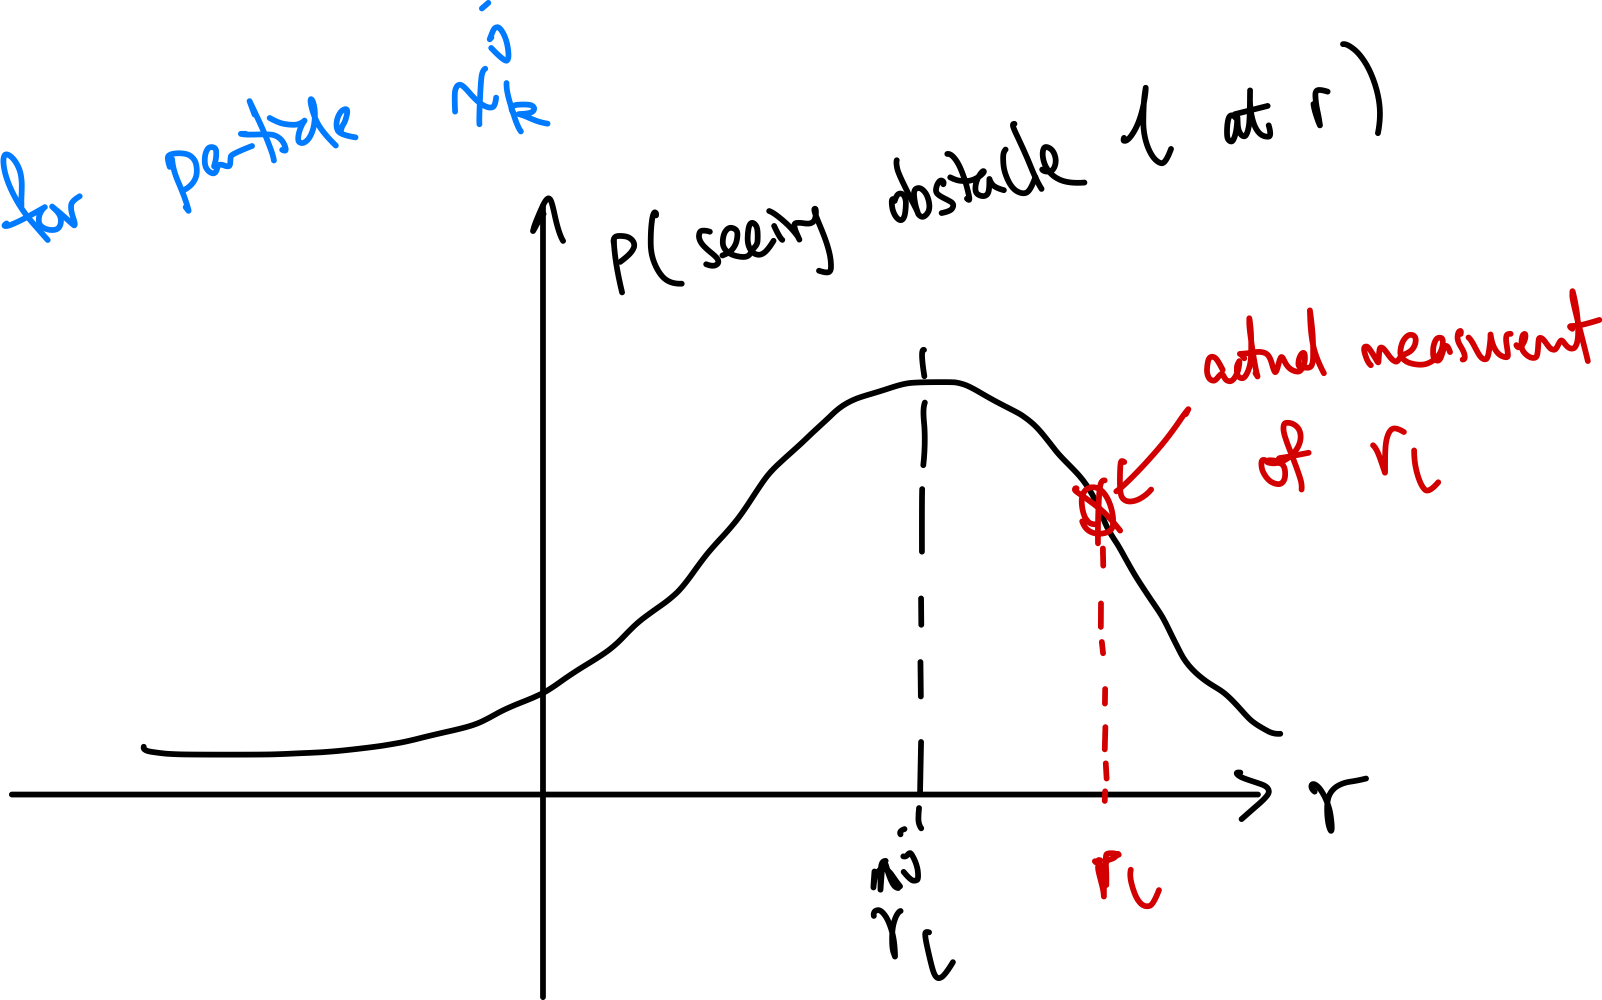 for particle x_k^j
P(seeing obstacle l at r)
actual measurent
of r_l
r
r̂_l^j
r_l